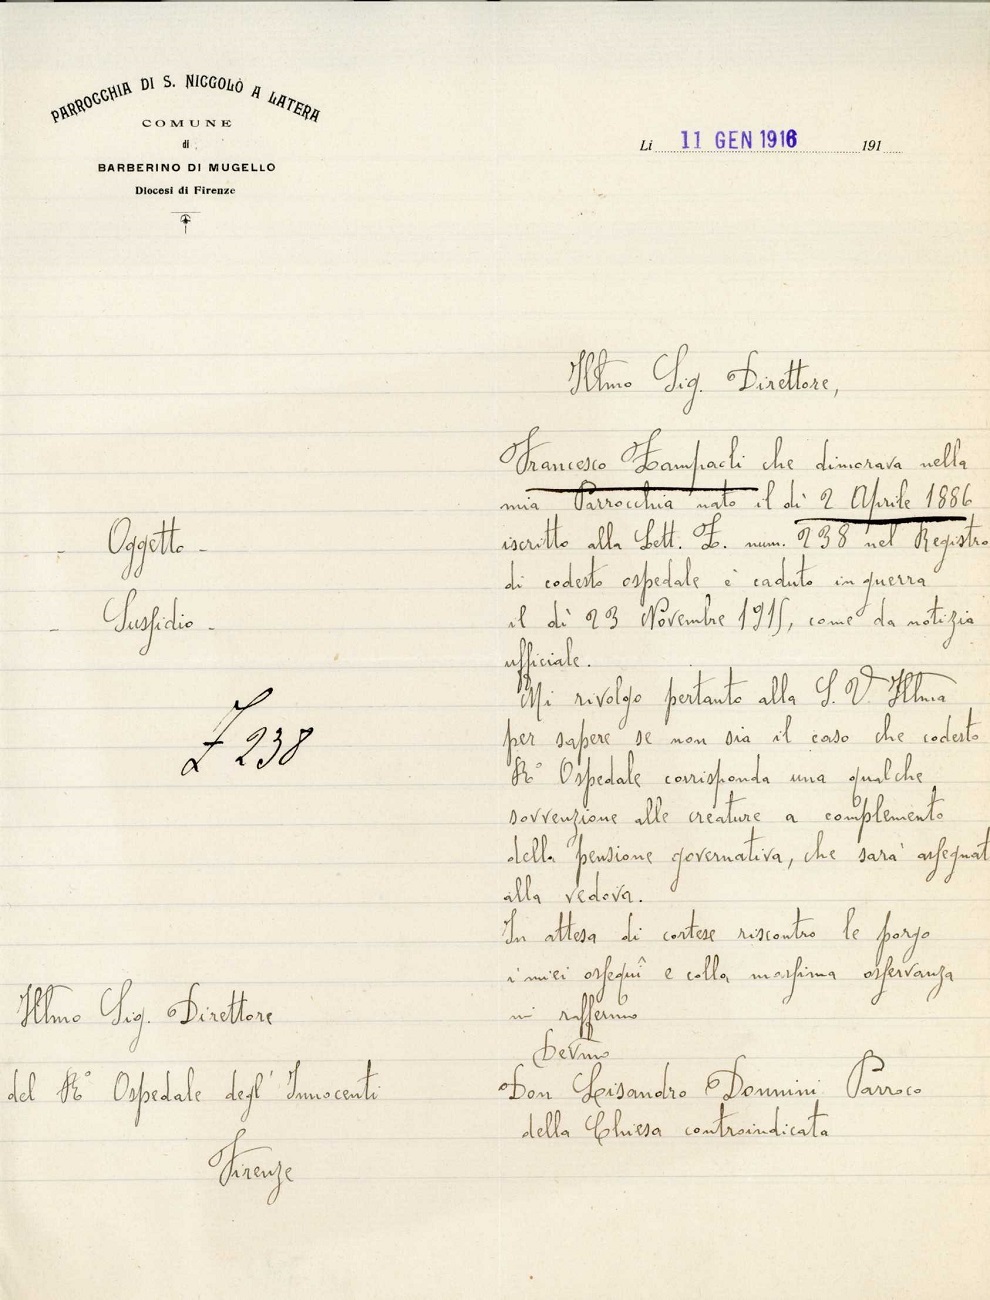 PARROCCHIA DI S. NICCOLÒ A LATERA
COMUNE
di
BARBERINO DI MUGELLO
Diocesi di Firenze
Li 11 GEN 1916 191
Illmo Sig. Direttore,
Francesco Zampaoli che dimorava nella
mia Parrocchia nato il dì 2 Aprile 1886
iscritto alla Lett. Z. num. 238 nel Registro
di codesto ospedale è caduto in guerra
il dì 23 Novembre 1915, come da notizia
ufficiale.
Mi rivolgo pertanto alla S. V. Illma
per sapere se non sia il caso che codesto
R° Ospedale corrisponda una qualche
sovvenzione alle creature a complemento
della pensione governativa, che sarà assegnat
alla vedova.
In attesa di cortese riscontro le porgo
i miei ossequî e colla massima osservanza
mi raffermo
Devmo
Don Lisandro Donnini Parroco
della Chiesa controindicata
- Oggetto -
- Sussidio -
Z 238
Illmo Sig. Direttore
del R° Ospedale degl' Innocenti
Firenze